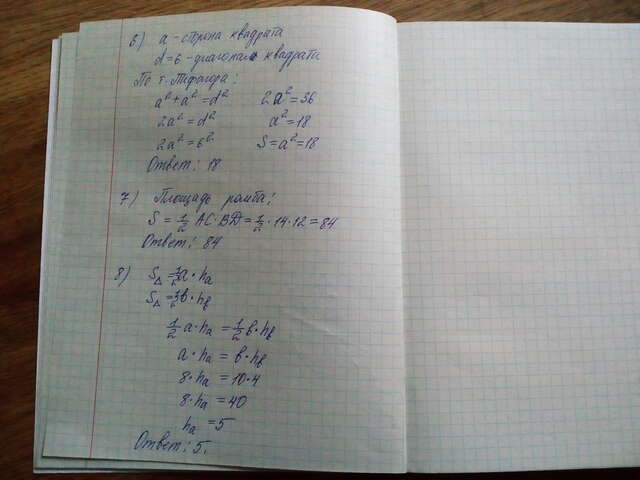 6) a - сторона квадрата
d=6 - диагональ квадрата
По т. Пифагора:
a²+a²=d² 2a²=36
2a²=d² a²=18
2a²=6² S=a²=18
Ответ: 18
7) Площадь ромба:
S = 1/2 AC·BD = 1/2 · 14 · 12 = 84
Ответ: 84
8) S△ = 1/2 a · hₐ
S△ = 1/2 b · h_b
1/2 a · hₐ = 1/2 b · h_b
a · hₐ = b · h_b
8 · hₐ = 10 · 4
8 · hₐ = 40
hₐ = 5
Ответ: 5.